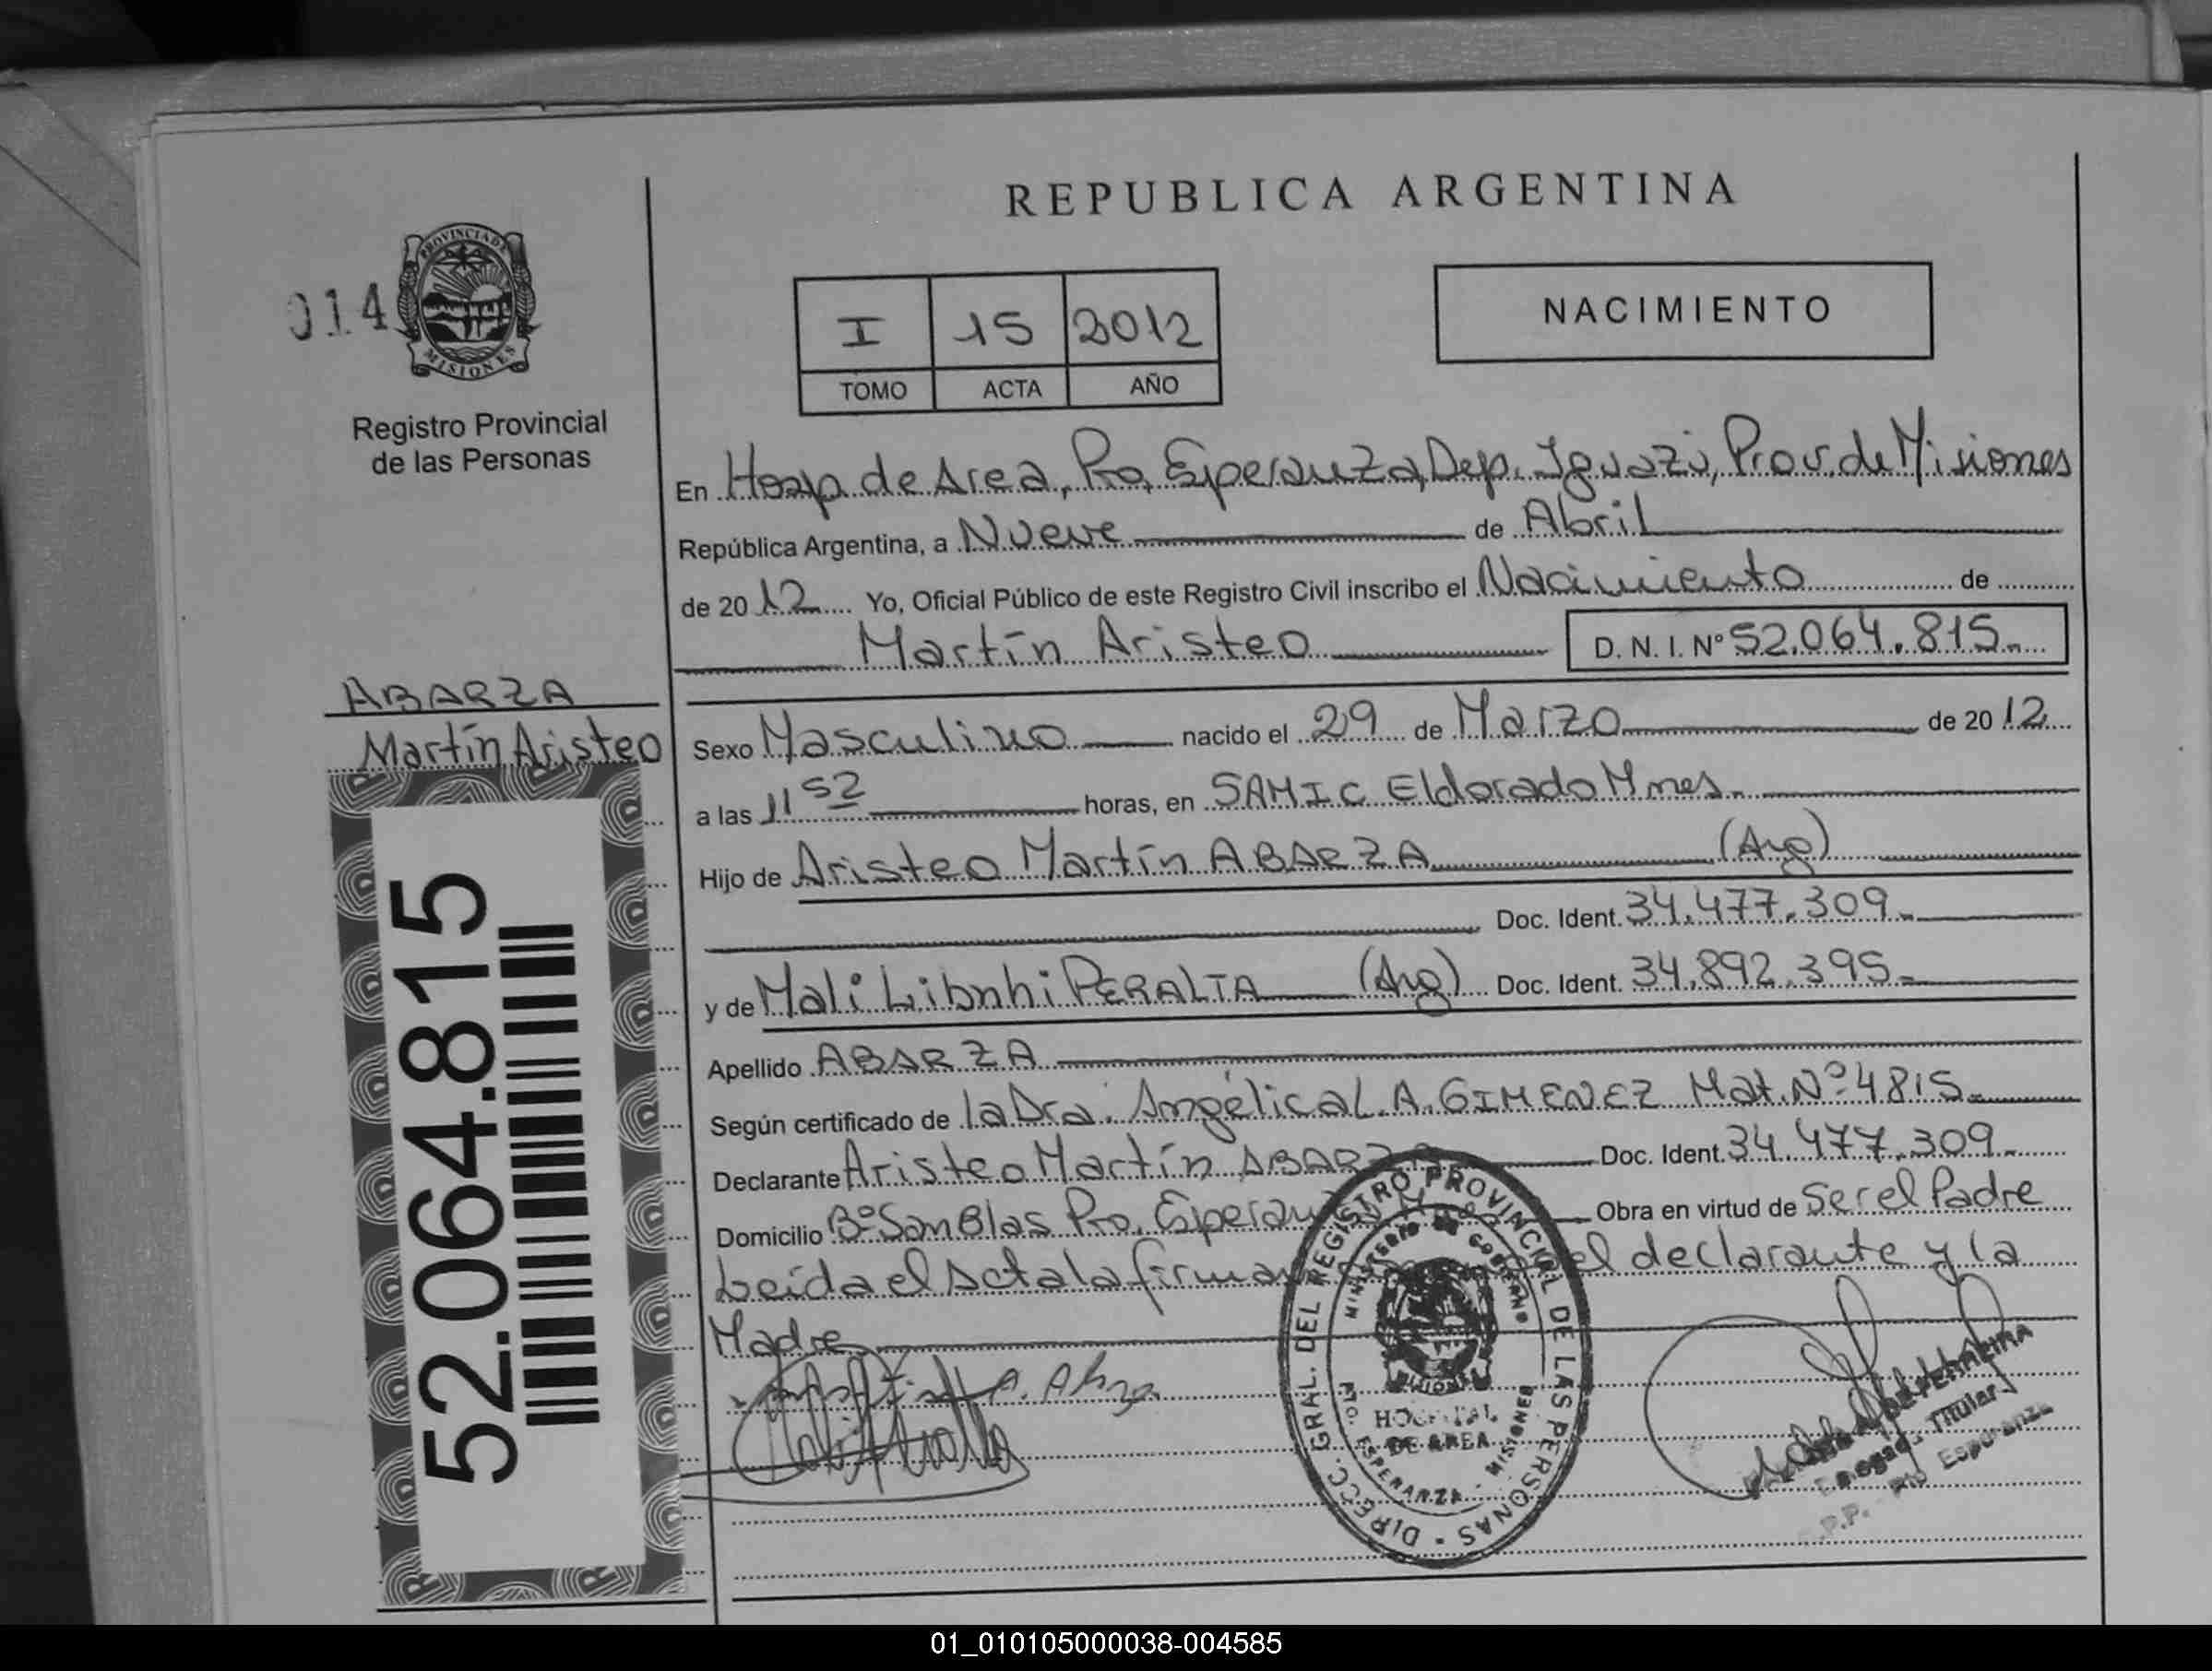 REPUBLICA ARGENTINA
014
PROVINCIA DE
MISIONES
Registro Provincial
de las Personas
I 15 2012
TOMO ACTA AÑO
NACIMIENTO
En Hosp de Area, Pto, Esperanza, Dep. Iguazú, Prov. de Misiones
República Argentina, a Nueve de Abril
de 2012 Yo, Oficial Público de este Registro Civil inscribo el Nacimiento de
Martín Aristeo D. N. I. Nº 52.064.815.-
ABARZA
Martín Aristeo
Sexo Masculino nacido el 29 de Marzo de 2012
a las 11 52 horas, en SAMIC Eldorado Mnes.
Hijo de Aristeo Martín ABARZA (Arg)
Doc. Ident. 34.477.309.-
y de Mali Libnhi PERALTA (Arg) Doc. Ident. 34.892.395.-
Apellido ABARZA
Según certificado de la Dra. Angélica L. A. GIMENEZ Mat. Nº 4815.-
Declarante Aristeo Martín ABARZA Doc. Ident. 34.477.309.-
Domicilio Bº San Blas Pto. Esperanza Mnes Obra en virtud de Ser el Padre
Leída el Acta la firman el declarante y la
Madre
52.064.815
DIRECC. GRAL. DEL REGISTRO PROVINCIAL DE LAS PERSONAS
MINISTERIO DE GOBIERNO
MISIONES
HOSPITAL
DE AREA
PTO. ESPERANZA - MISIONES
Titular
R.P.P. - Pto Esperanza
01_010105000038-004585